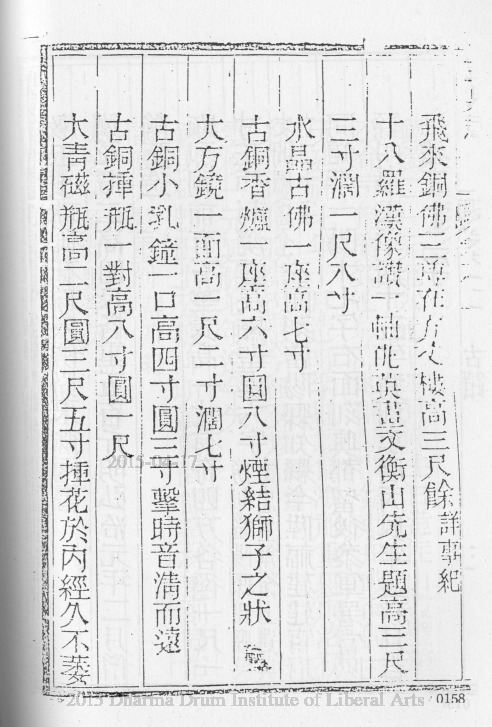 飛來銅佛三尊在方丈樓高三尺餘詳事紀
十八羅漢像讚一軸 英畫文衡山先生題高三尺
三寸濶一尺八寸
水晶古佛一座高七寸
古銅香爐一座高六寸圓八寸煙結獅子之狀
大方鏡一面高一尺二寸濶七寸
古銅小乳鐘一口高四寸圓三寸擊時音清而遠
古銅挿瓶一對高八寸圓一尺
大青磁瓶高二尺圓三尺五寸挿花於内經久不萎
2015-04-17
2015 Dharma Drum Institute of Liberal Arts
0158